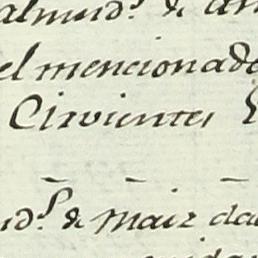 almud.s de
el mencionado
Cirvientes
d.s de maiz da